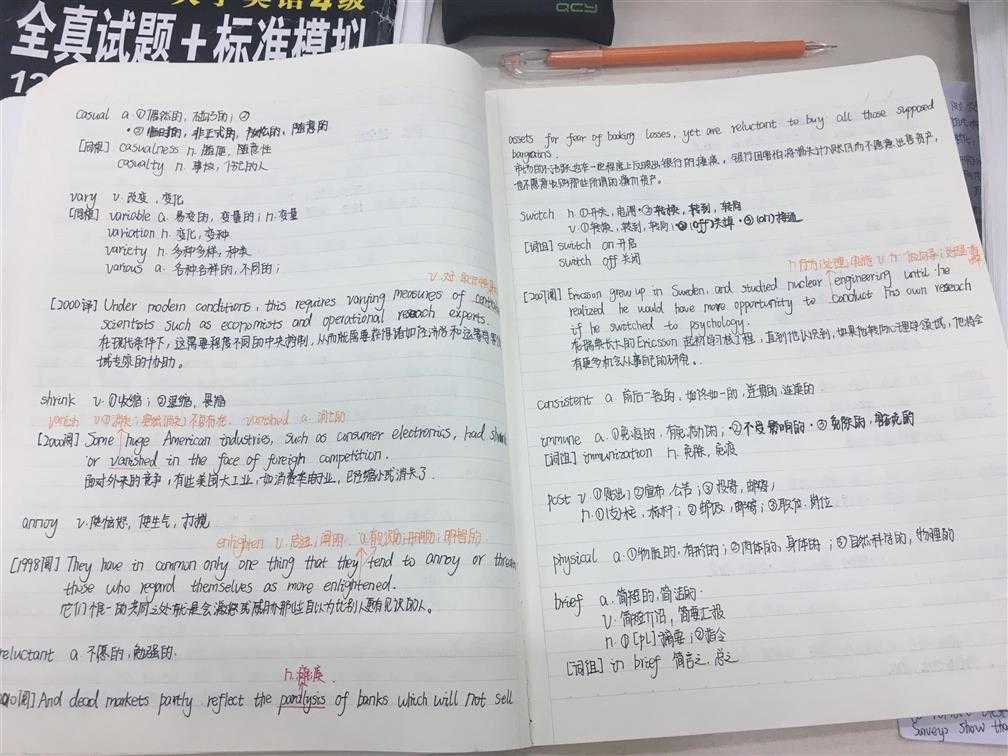 大学英语4级
全真试题+标准模拟
12
QCY
casual a ①偶然的，碰巧的；②
·②临时的，非正式的，随意的
[同根] casualness n. 随便，随意性
casualty n. 事故，伤亡的人
vary v. 改变，变化
[同根] variable a. 易变的，变量的；n. 变量
variation n. 变化，变种
variety n. 多种多样，种类
various a. 各种各样的，不同的；
v. 对
[2000译] Under modern conditions, this requires varying measures of
scientists such as economists and operational reseach experts.
在现代条件下，这需要程度不同的中央控制，从而就需要获得诸如经济学和运筹学
域专家的协助。
shrink v. ①收缩；②退缩，畏缩
vanish v. ①消失；突然消失；不复存在 vanished a. 消亡的
[2000阅] Some huge American industries, such as consumer electronics, had
or vanished in the face of foreigh competition.
面对外来的竞争，有些美国大工业，如消费电子业，已经缩小或消失了.
annoy v. 使恼怒，使生气，打搅
enlighten v. 启迪，阐明.
[1998阅] They have in common only one thing that they tend to annoy or
those who regard themselves as more enlightened.
它们惟一的共同之处就是会激怒或威胁那些自认为比别人更有见识的人。
reluctant a. 不愿的，勉强的.
n. 瘫痪.
阅] And dead markets partly reflect the paralysis of banks which will not sell
assets for fear of booking losses, yet are reluctant to buy all those supposed
bargains.
市场的不活跃也在一定程度上反映出银行的瘫痪，银行因害怕将损失计入账内而不愿意出售资产，
也不愿意收购那些所谓的廉价资产。
switch n ①开关，电闸·②转换，转到，转向
v. ①转换，转到，转向；②(off)关掉·③(on)接通
[词组] switch on 开启
switch off 关闭
n
[2007阅] Ericsson grew up in Sweden, and studied nuclear engineering until he
realized he would have more opportunity to conduct his own reseach
if he switched to psychology.
在瑞典长大的Ericsson起初学习核工程，直到他认识到，如果他转向心理学领域，他将会
有更多机会从事自己的研究。
consistent a 前后一致的，始终如一的，连贯的
immune a. ①免疫的，有抵抗力的；②不受影响的·③免除的，豁免的
[词组] immunization n. 免除，免疫
post v. ①贴出；②宣布，公告；③投寄，邮寄；
n. ①(支)柱，标杆；②邮政，邮寄；③职位，岗位
physical a ①物质的，有形的；②肉体的，身体的；③自然科学的，物理的
brief a. 简短的，简洁的·
v. 简短介绍，简要汇报
n. ①[pl]摘要；②指令
[词组] in brief 简言之，总之
Surveys show tha